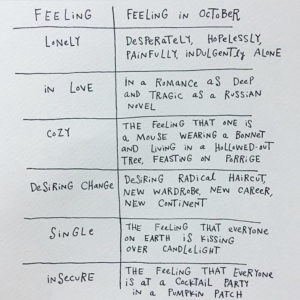 FEELING
FEELING IN OCTOBER
LONELY
DESPERATELY, HOPELESSLY,
PAINFULLY, INDULGENTLY ALONE
IN LOVE
IN A ROMANCE AS DEEP
AND TRAGIC AS A RUSSIAN
NOVEL
COZY
THE FEELING THAT ONE IS
A MOUSE WEARING A BONNET
AND LIVING IN A HOLLOWED-OUT
TREE, FEASTING ON PORRIGE
DESIRING CHANGE
DESIRING RADICAL HAIRCUT,
NEW WARDROBE, NEW CAREER,
NEW CONTINENT
SINGLE
THE FEELING THAT EVERYONE
ON EARTH IS KISSING
OVER CANDLELIGHT
INSECURE
THE FEELING THAT EVERYONE
IS AT A COCKTAIL PARTY
IN A PUMPKIN PATCH